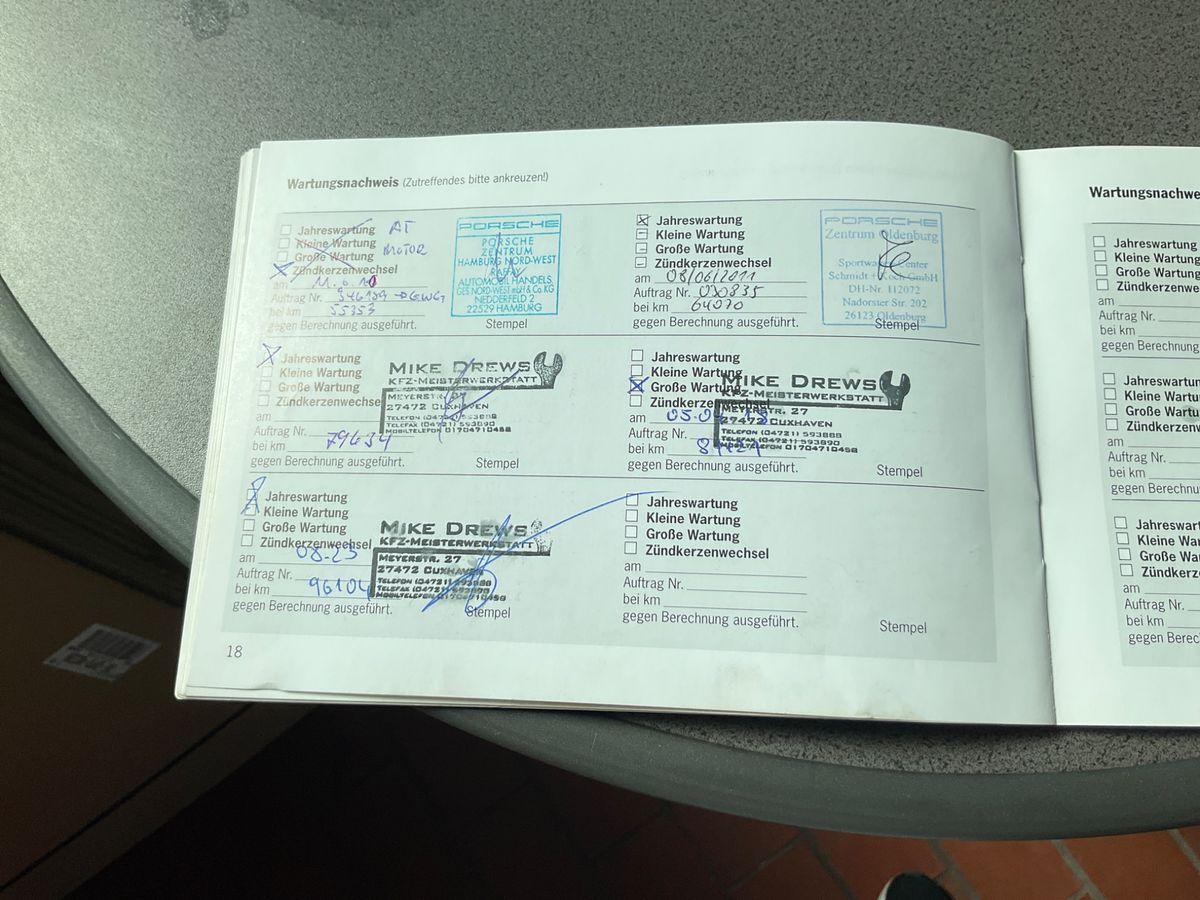 Wartungsnachweis (Zutreffendes bitte ankreuzen!)
Jahreswartung AT
Kleine Wartung MOTOR
Große Wartung
Zündkerzenwechsel
am
Auftrag Nr.
bei km 55353
gegen Berechnung ausgeführt.
PORSCHE
PORSCHE
ZENTRUM
HAMBURG NORD-WEST
RAFFAY
AUTOMOBIL HANDELS
GES NORD-WEST mbH & Co. KG
NEDDERFELD 2
22529 HAMBURG
Stempel
Jahreswartung
Kleine Wartung
Große Wartung
Zündkerzenwechsel
am 08/06/2011
Auftrag Nr. 030835
bei km 64070
gegen Berechnung ausgeführt.
PORSCHE
Zentrum Oldenburg
Sportwagen Center
Schmidt + Koch GmbH
DH-Nr. 112072
Nadorster Str. 202
26123 Oldenburg
Stempel
Jahreswartung
Kleine Wartung
Große Wartung
Zündkerzenwechsel
am
Auftrag Nr.
bei km 79634
gegen Berechnung ausgeführt.
MIKE DREWS
KFZ-MEISTERWERKSTATT
MEYERSTR. 27
27472 CUXHAVEN
TELEFON (04721) 593888
TELEFAX (04721) 593890
MOBILTELEFON 01704710458
Stempel
Jahreswartung
Kleine Wartung
Große Wartung
Zündkerzenwechsel
am
Auftrag Nr.
bei km
gegen Berechnung ausgeführt.
MIKE DREWS
KFZ-MEISTERWERKSTATT
MEYERSTR. 27
27472 CUXHAVEN
TELEFON (04721) 593888
TELEFAX (04721) 593890
MOBILTELEFON 01704710458
Stempel
Jahreswartung
Kleine Wartung
Große Wartung
Zündkerzenwechsel
am 08-23
Auftrag Nr.
bei km 96104
gegen Berechnung ausgeführt.
MIKE DREWS
KFZ-MEISTERWERKSTATT
MEYERSTR. 27
27472 CUXHAVEN
TELEFON (04721) 593888
TELEFAX (04721)
MOBILTELEFON 01704710458
Stempel
Jahreswartung
Kleine Wartung
Große Wartung
Zündkerzenwechsel
am
Auftrag Nr.
bei km
gegen Berechnung ausgeführt.
Stempel
18
Wartungsnachwe
Jahreswartung
Kleine Wartung
Große Wartung
Zündkerzenwec
am
Auftrag Nr.
bei km
gegen Berech
Jahreswartung
Kleine Wartung
Große Wartung
Zündkerzenwec
am
Auftrag Nr.
bei km
gegen Berech
Jahreswartung
Kleine Wartun
Große Wartun
Zündkerzenwe
am
Auftrag Nr.
bei km
gegen Berec